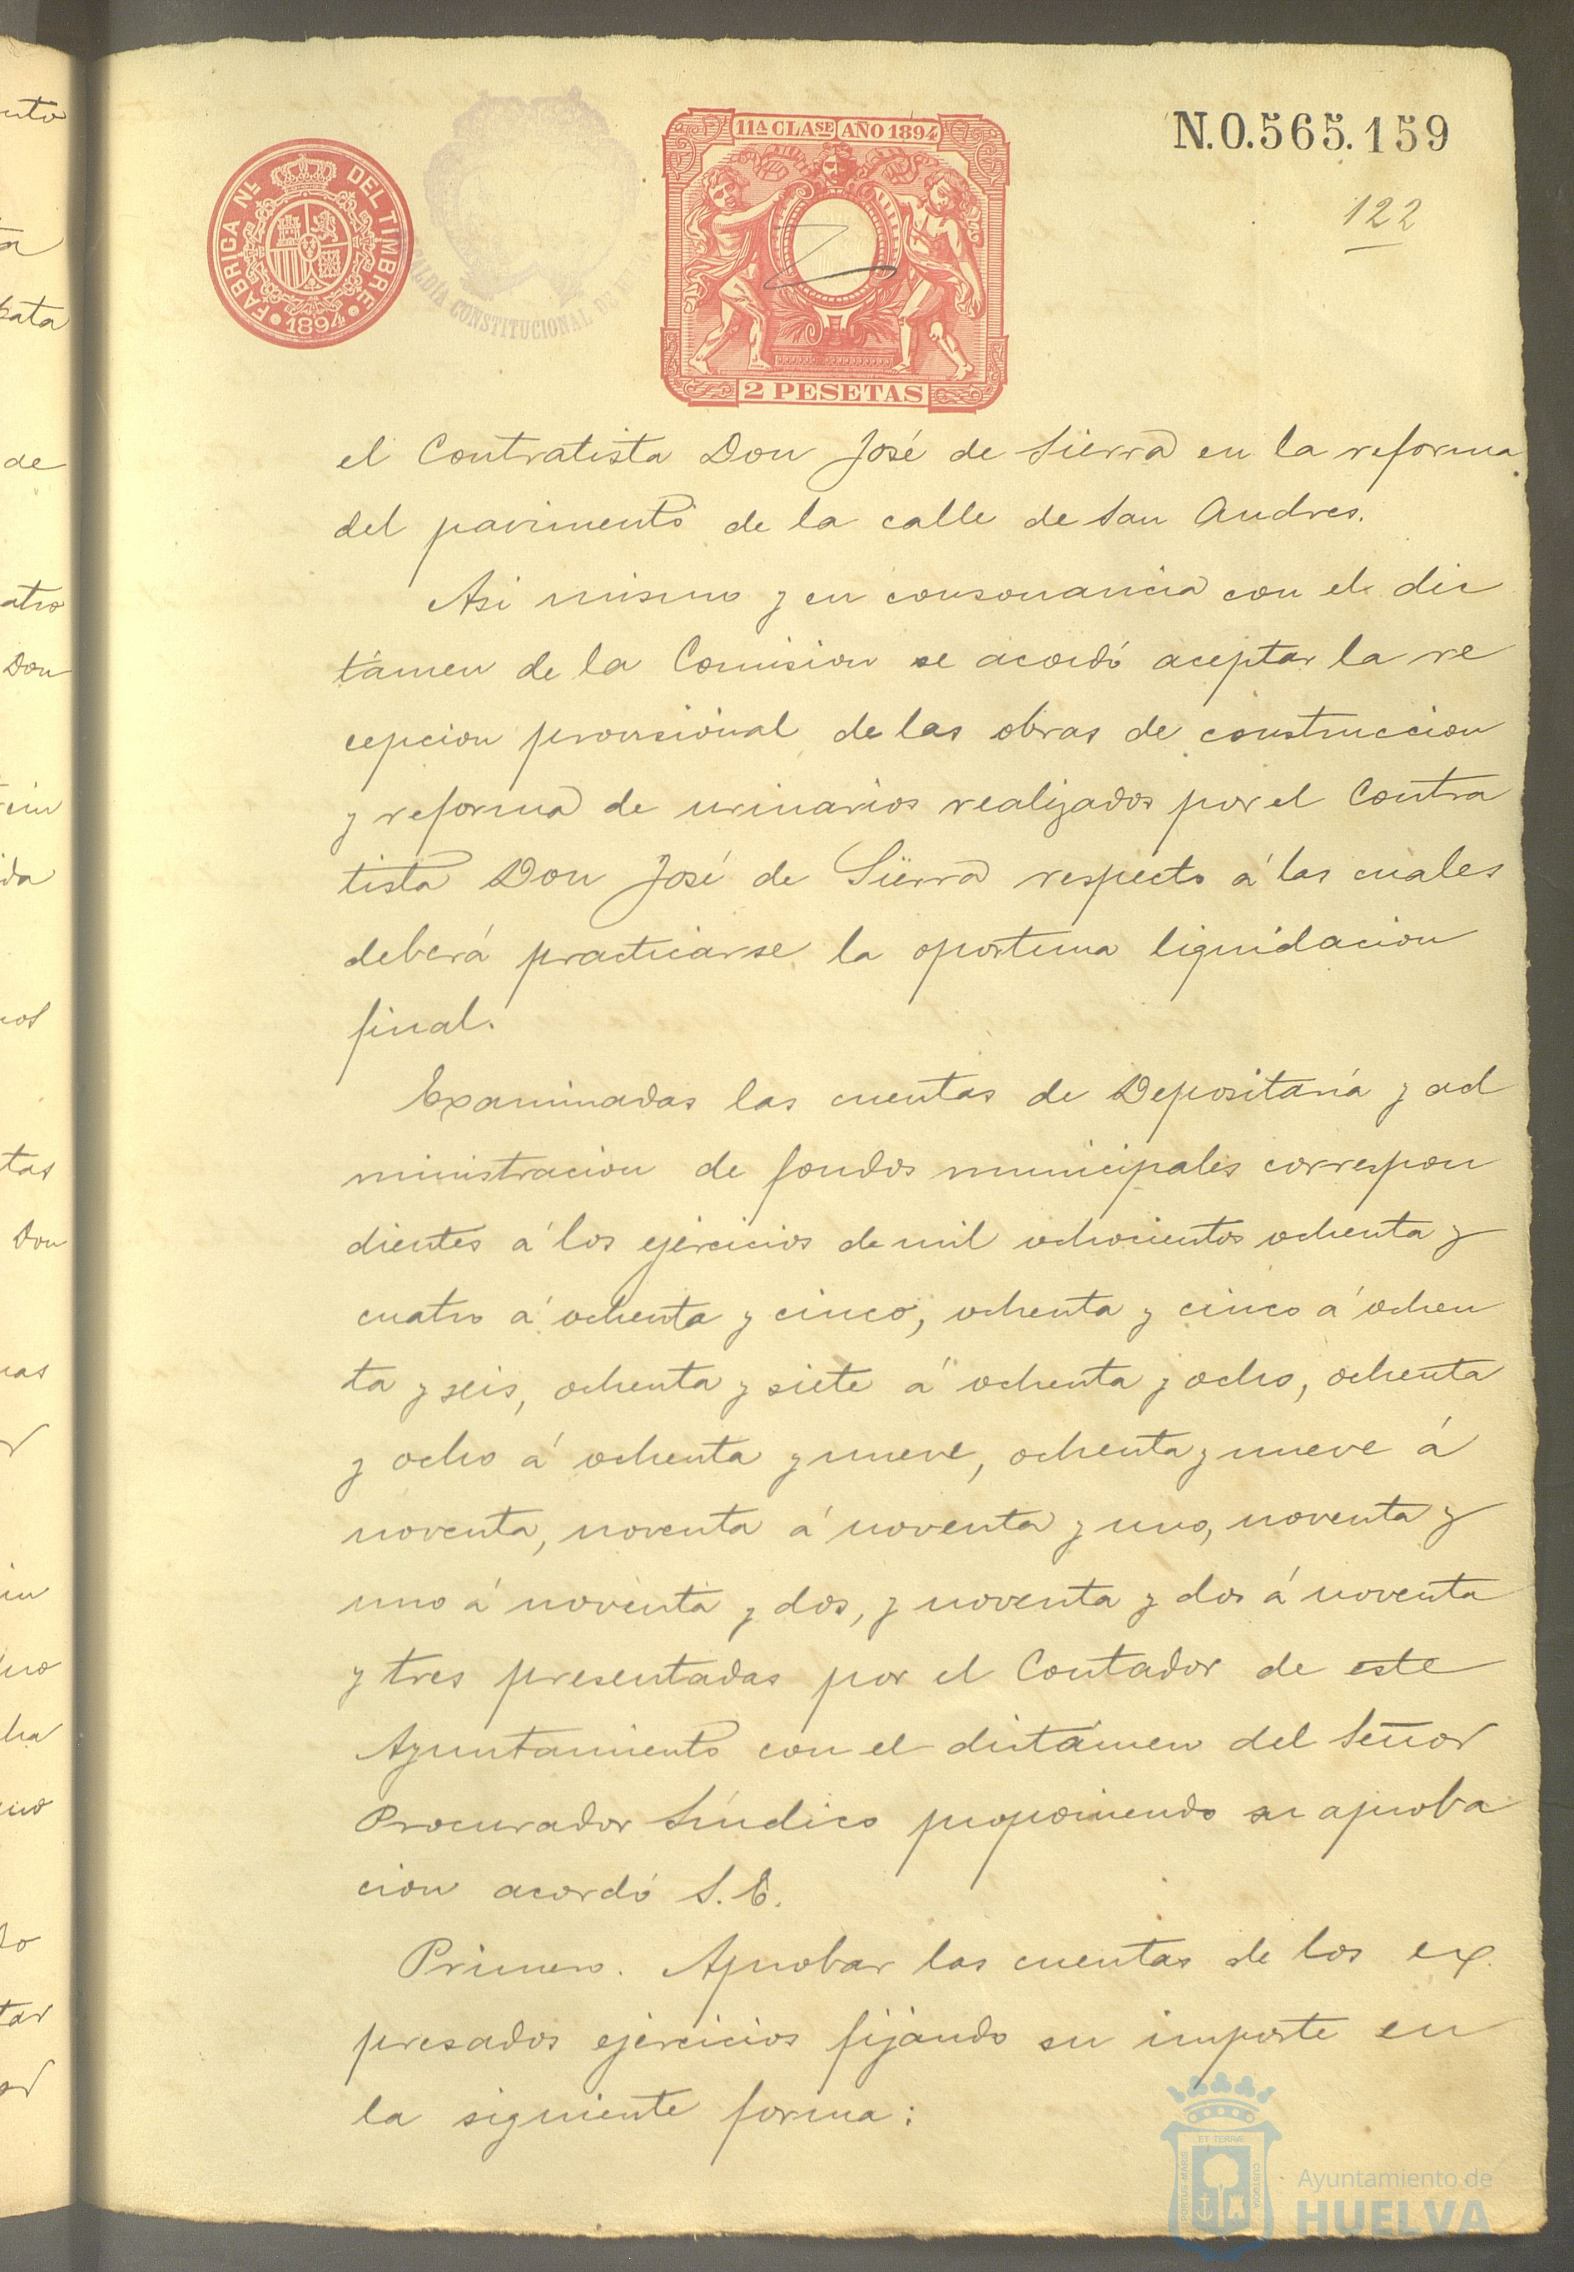 N.0.565.159
122
FABRICA NL. DEL TIMBRE
1894
ALDÍA CONSTITUCIONAL DE
11A CLASE AÑO 1894
2 PESETAS
el Contratista Don José de Sierra en la reforma
del pavimento de la calle de San Andres.
Asi mismo y en consonancia con el dic
támen de la Comision se acordó aceptar la re
cepcion provisional de las obras de construccion
y reforma de urinarios realizados por el Contra
tista Don José de Sierra respecto á las cuales
deberá practicarse la oportuna liquidacion
final.
Examinadas las cuentas de Depositaría y ad
ministracion de fondos municipales correspon
dientes á los ejercicios de mil ochocientos ochenta y
cuatro á ochenta y cinco, ochenta y cinco á ochen
ta y seis, ochenta y siete á ochenta y ocho, ochenta
y ocho á ochenta y nueve, ochenta y nueve á
noventa, noventa á noventa y uno, noventa y
uno á noventa y dos, y noventa y dos á noventa
y tres presentadas por el Contador de este
Ayuntamiento con el dictámen del Señor
Procurador Síndico proponiendo su aproba
cion acordó S.E.
Primero. Aprobar las cuentas de los ex
presados ejercicios fijando su importe en
la siguiente forma:
ET TERRÆ
PORTUS MARIS
CUSTODIA
Ayuntamiento de
HUELVA